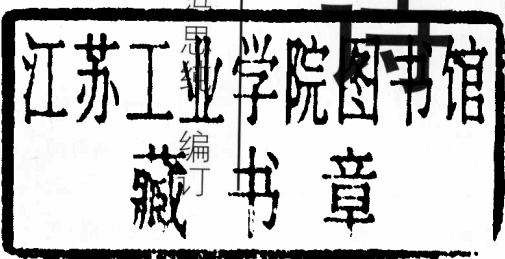 江苏工业学院图书馆
藏书章
思纯 编订